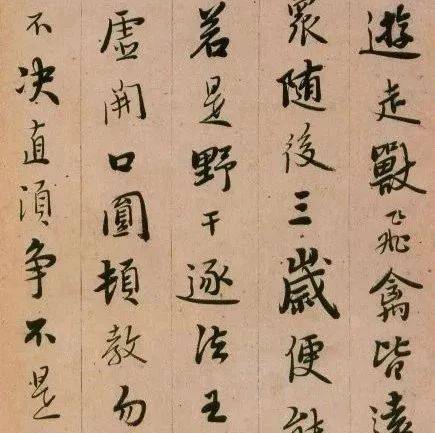 遊走獸飛禽皆遠
眾随後三歲便能
若是野干逐法王
虛開口圓頓教勿
不决直須争不是